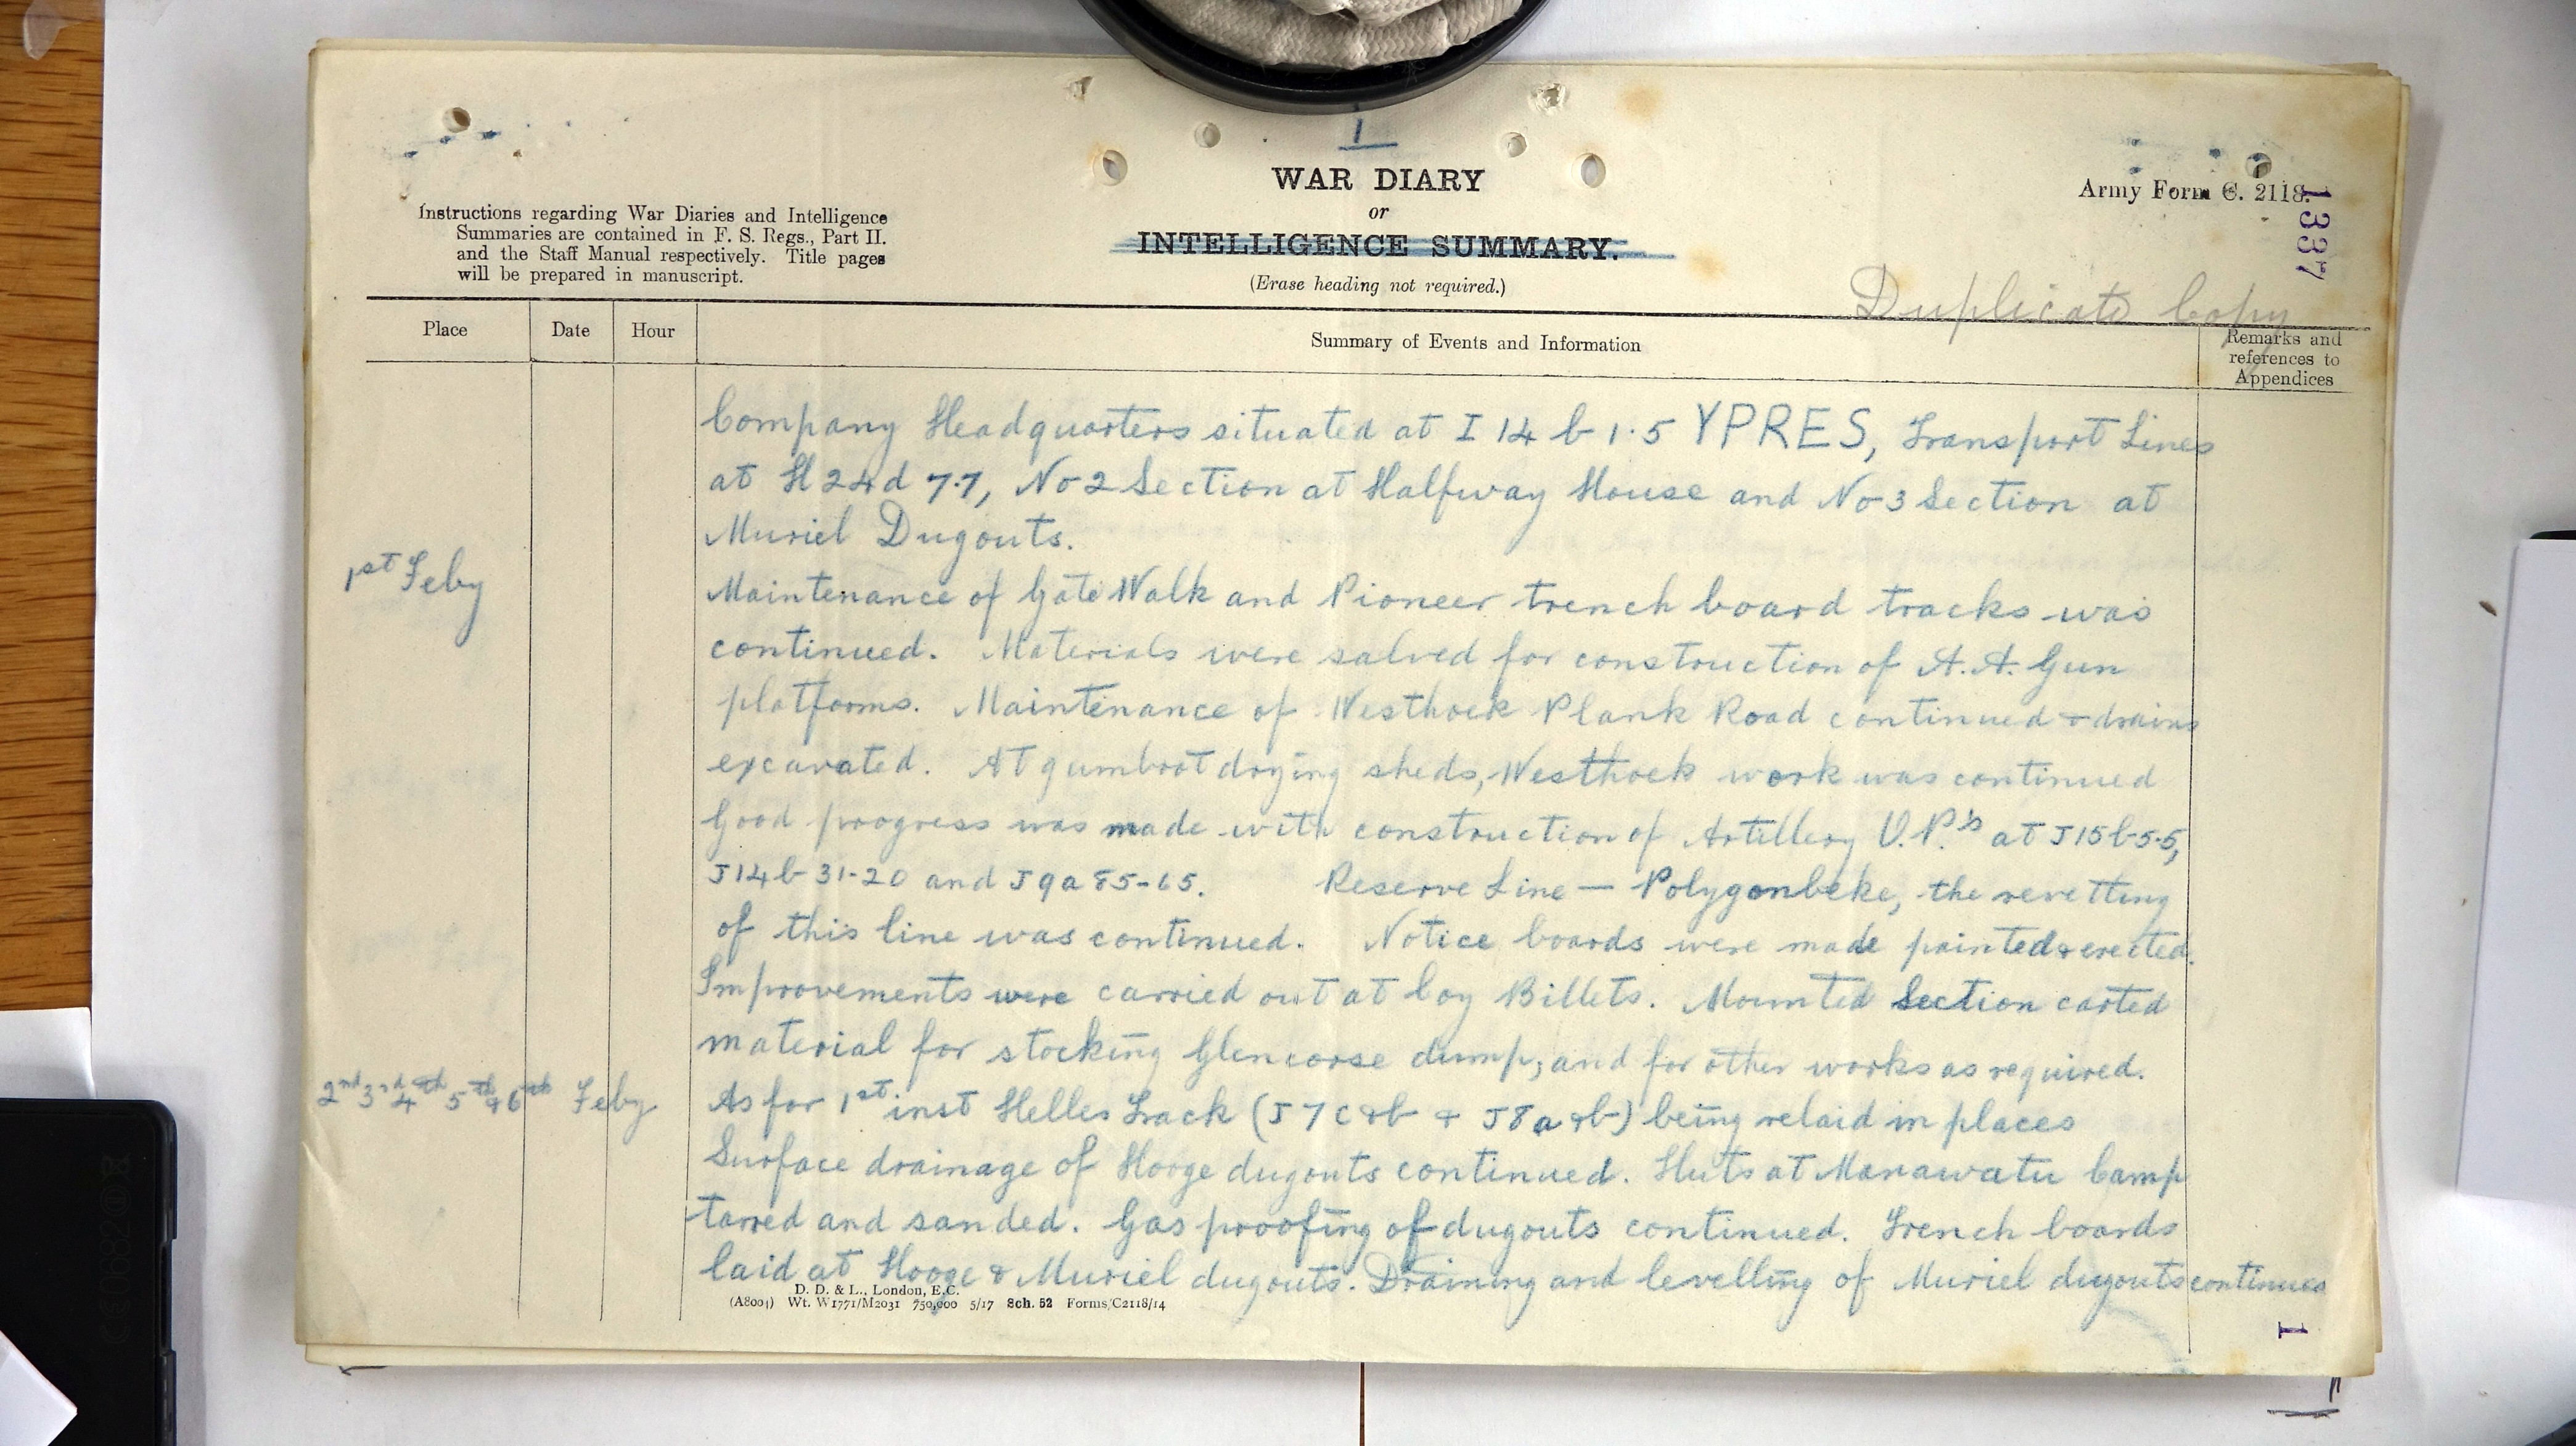 1
WAR DIARY
or
INTELLIGENCE SUMMARY.
(Erase heading not required.)
Instructions regarding War Diaries and Intelligence
Summaries are contained in F. S. Regs., Part II.
and the Staff Manual respectively. Title pages
will be prepared in manuscript.
Army Form C. 2118.
1337
Duplicate Copy
Place
Date
Hour
Summary of Events and Information
Remarks and
references to
Appendices
Company Headquarters situated at I 14 b 1.5 YPRES, Transport Lines
at H 24 d 7.7, No 2 Section at Halfway House and No 3 Section at
Muriel Dugouts.
1st Feby
Maintenance of Gate Walk and Pioneer trench board tracks was
continued. Materials were salved for construction of A.A. Gun
platforms. Maintenance of Westhoek Plank Road continued & drains
excavated. At gumboot drying sheds, Westhoek work was continued
Good progress was made with construction of Artillery O.P.'s at J15b5-5,
J14b 31-20 and J9a 85-65. Reserve Line — Polygonbeke, the revetting
of this line was continued. Notice boards were made painted & erected.
Improvements were carried out at Coy Billets. Mounted Section carted
material for stocking Glencorse dump, and for other works as required.
2nd 3rd 4th 5th & 6th Feby
As for 1st inst Helles Track (J 7 c & b & J 8 a & b) being relaid in places
Surface drainage of Hooge dugouts continued. Huts at Manawatu Camp
tarred and sanded. Gas proofing of dugouts continued. Trench boards
laid at Hooge & Muriel dugouts. Draining and levelling of Muriel dugouts continued
D. D. & L., London, E.C.
(A8004) Wt. W1771/M2031 750,000 5/17 Sch. 52 Forms/C2118/14
1